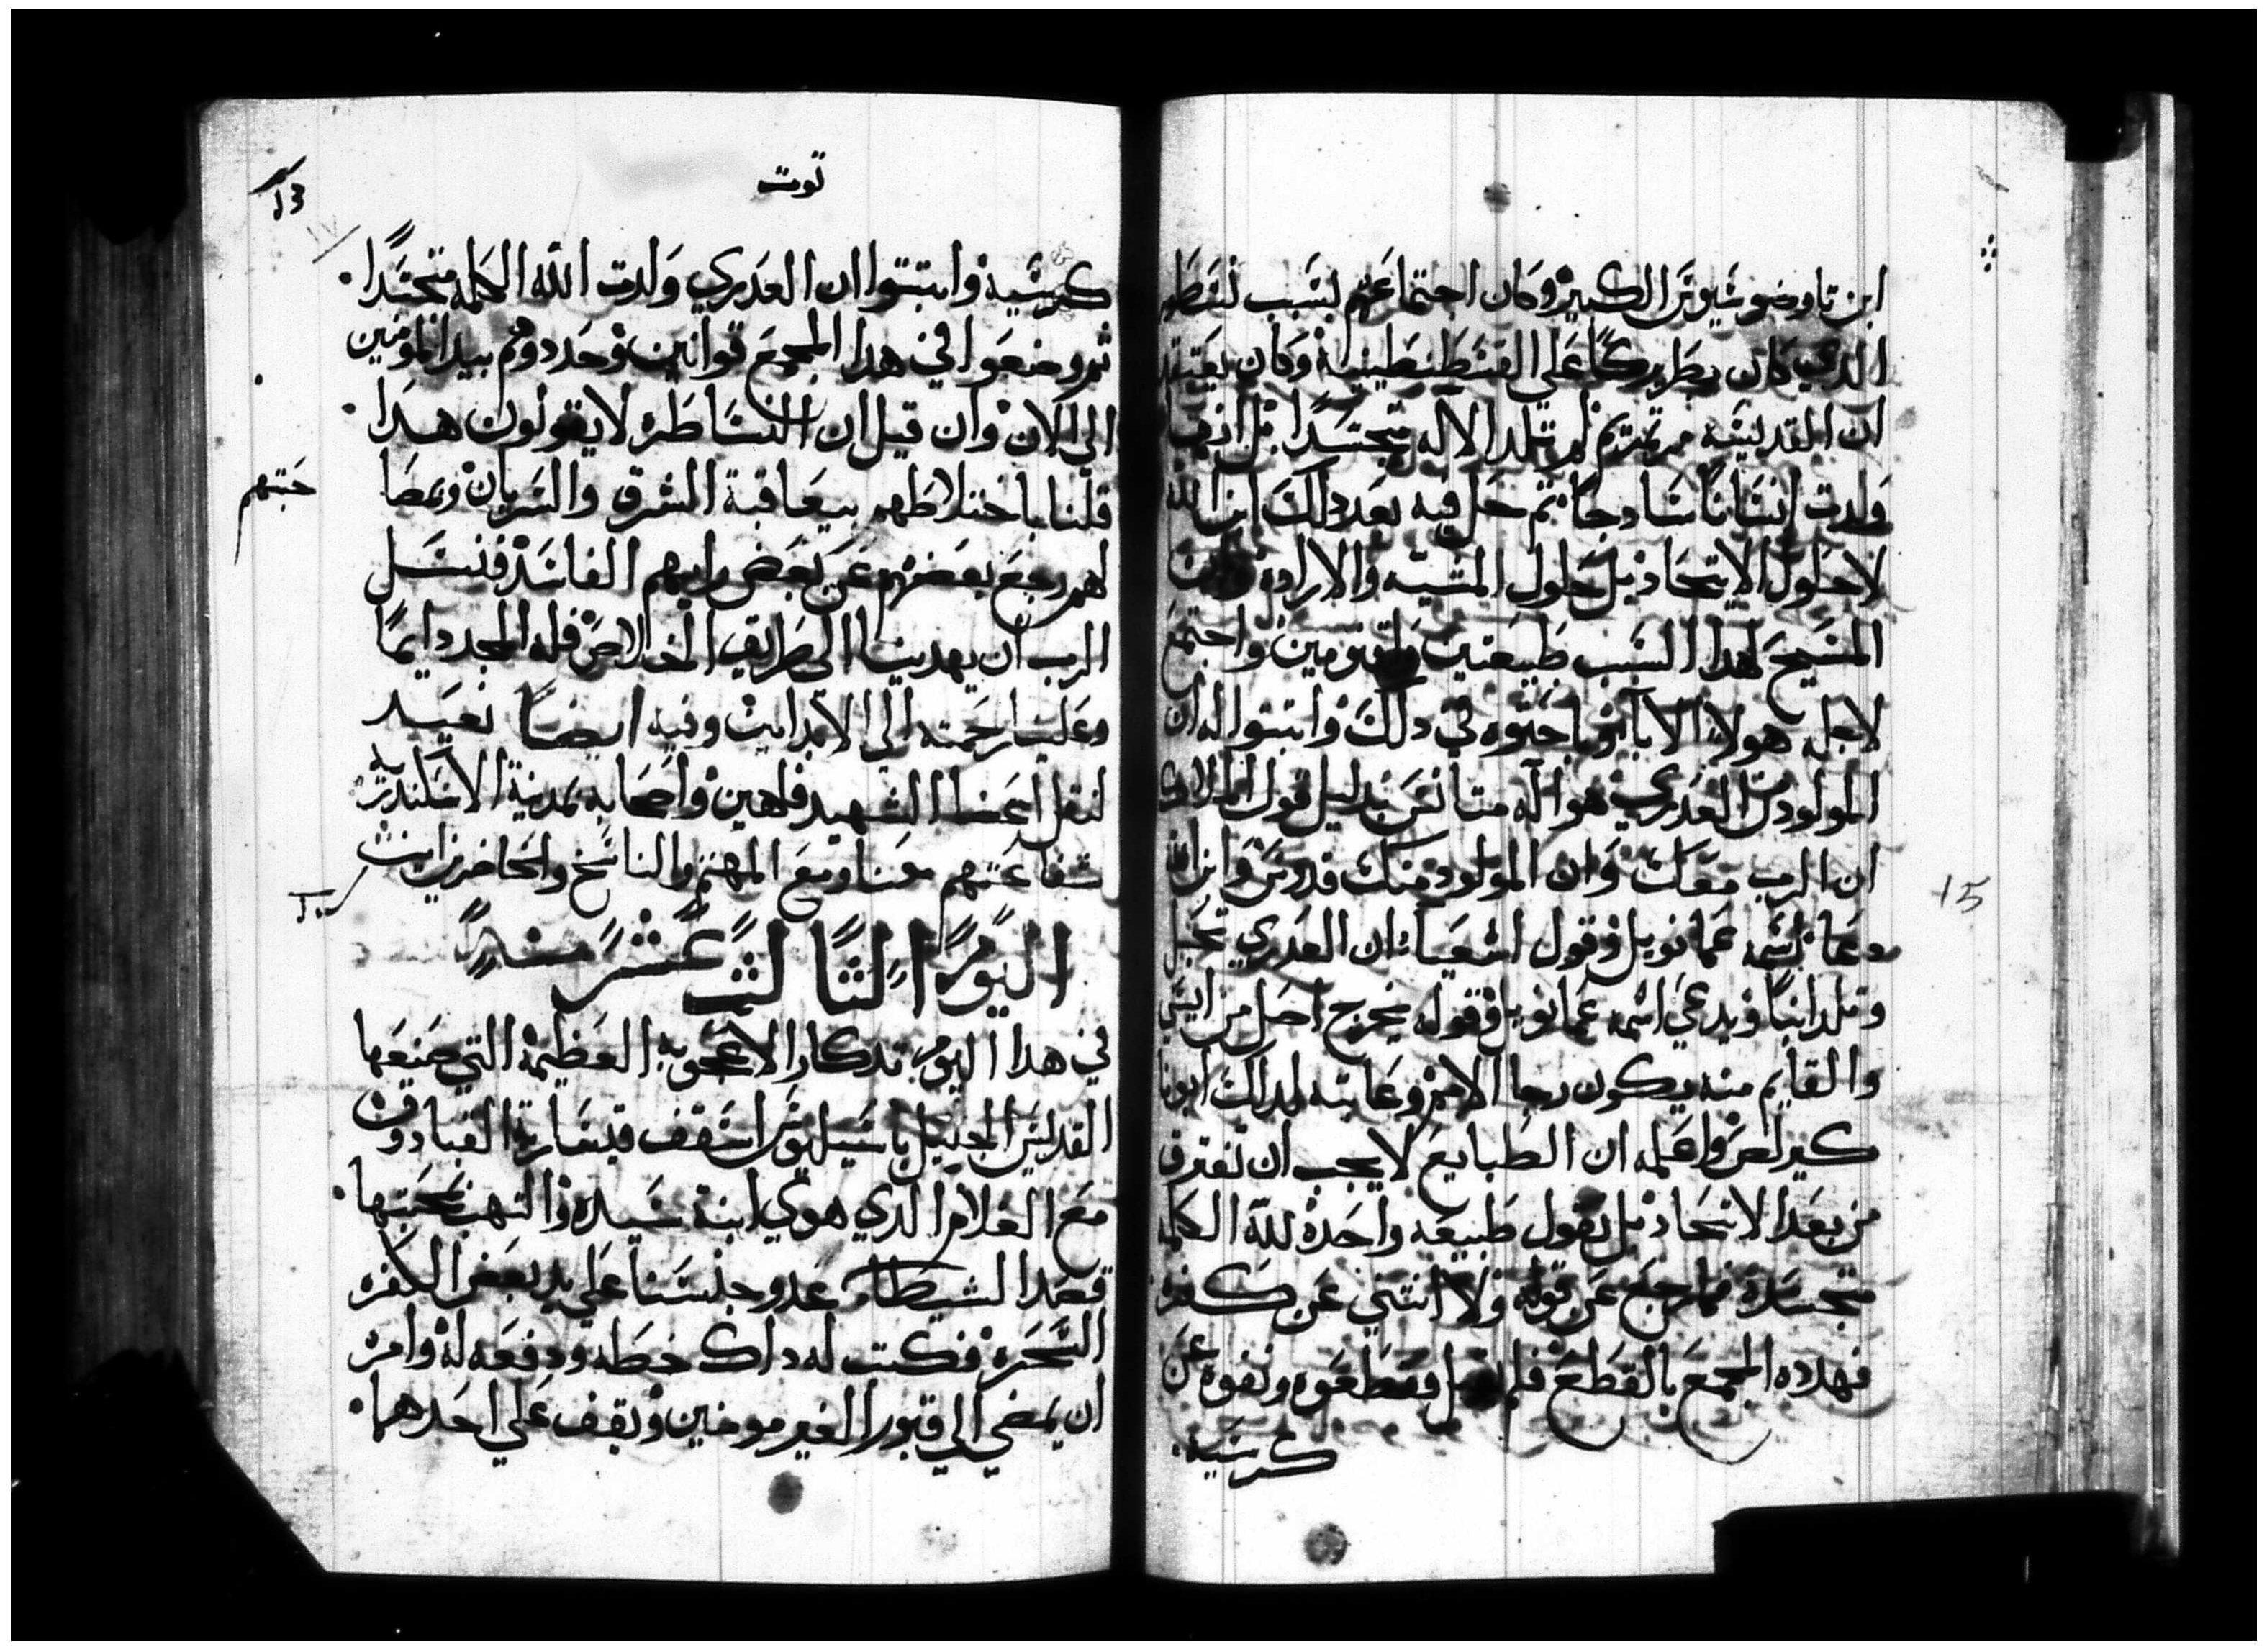 ابن تاوضوسيوس الكبير وكان اجتماعهم بسبب نسطور
الدي كان بطريركا على القسطنطينية وكان يعتقد
ان القديسه مرتمريم لم تلد الاله متجسدا بل انها
ولدت انسانا سادجا تم حل فيه بعد دلك ابن الله
لا حلول الاتحاد بل حلول المشيه والارادة وان
المسيح لهدا السبب طبيعتين واقنومين واجتمع
لاجله هولاء الابا وباحتوه في دلك واتبتوا له ان
المولود من العدري هو اله متانس بدليل قول الملاك
ان الرب معك وان المولود منك قدوس وابن الله
ودعا اسمه عمانويل وقول اشعيا ان العدري تحبل
وتلد ابنا ويدعي اسمه عمانويل وقوله يخرج اصل من ايسي
والقايم منه يكون رجا الامم وعاتبه لدلك ابونا
كيرلص واعلمه ان الطبايع لا يجب ان تفترق
من بعد الاتحاد بل نقول طبيعه واحده لله الكلمه
متجسده فما رجع عن قوله ولا انتني عن كفره
فهدده المجمع بالقطع فلم يقبل فقطعوه ونفوه عن
كرسيه
15
توت
13
كرسيه واتبتوا ان العدري ولدت الله الكلمه متجسدا
تم وضعوا في هدا المجمع قوانين وحدود وهم بيد المومنين
الى الان وان قيل ان النساطره لا يقولون هدا
قلنا باختلاطهم بيعاقبة الشرق والسريان وبمصا
حبتهم
لهم رجع بعضهم عن بعض رايهم الفاسد فنسل
الرب ان يهدينا الى طريق الخلاص فله المجد دايما
وعلينا رحمته الى الابد امين وفيه ايضا نعيد
لنقل اعضا الشهيد قلاهين واصحابه بمدينة الاسكندريه
شفاعتهم معنا ومع المهتم والناسخ والحاضرين امين
اليوم التالت عشر منه
في هدا اليوم تدكار الاعجوبه العظيمة التي صنعها
القديس الجليل باسيليوس اسقف قيسارية القبادوق
مع الغلام الدي هوي ابنة سيده والتهب بمحبتها
قصد الشيطان عدو جنسنا على يد بعض الكفره
السحره فكتب له داك خطه ودفعه له وامره
ان يمضي الي قبور الغير مومنين ويقف على احدهما